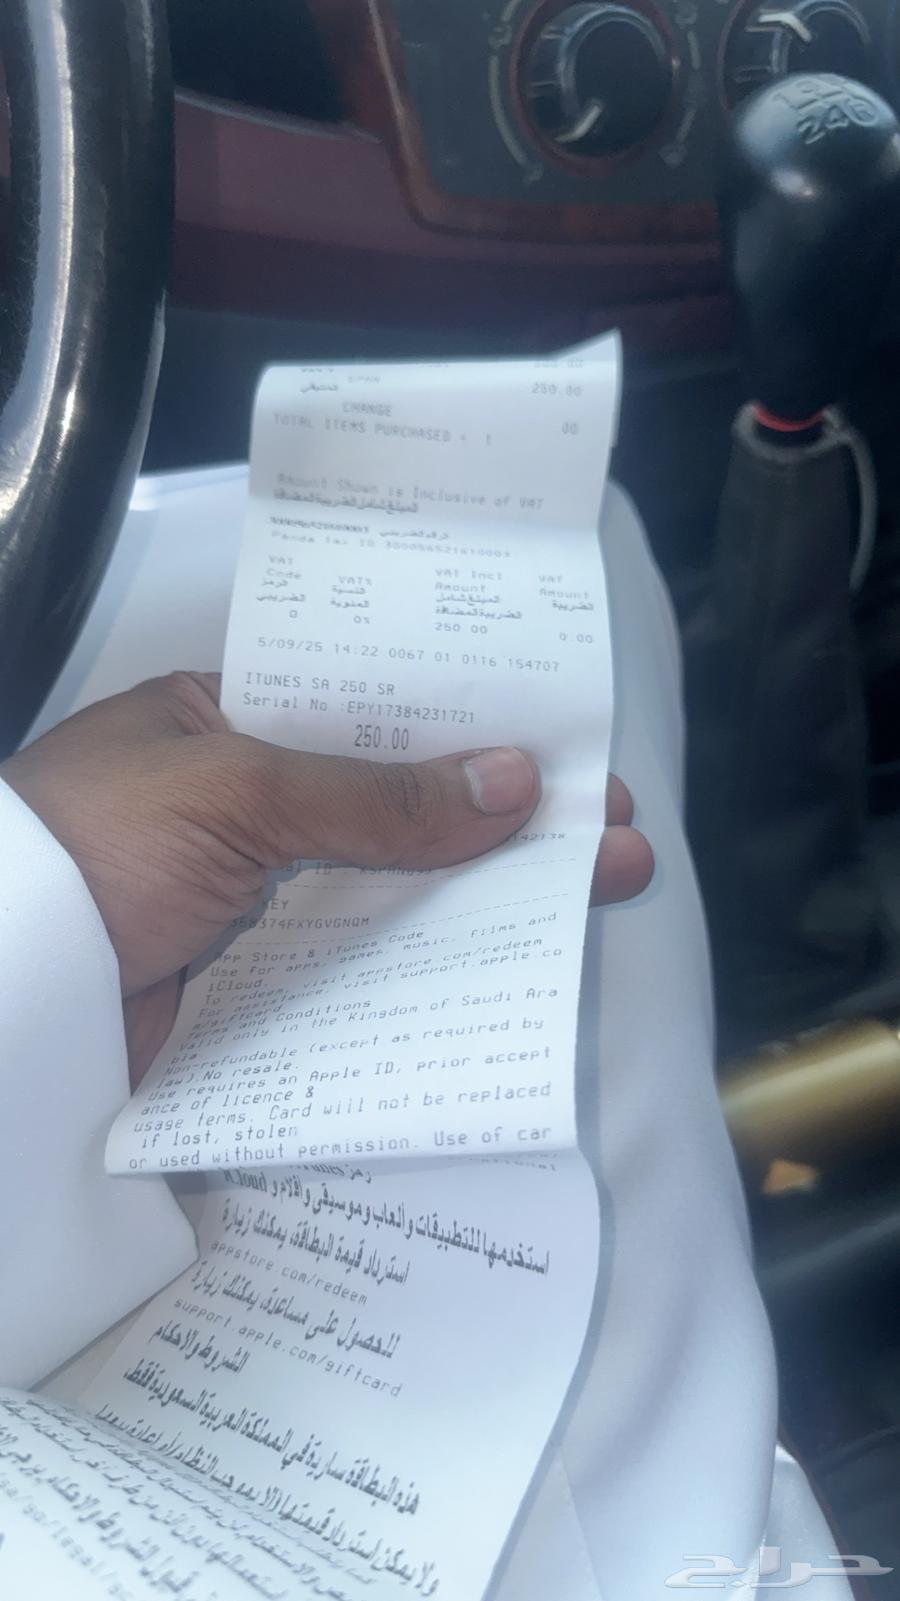 250.00
المتبقي SPAN
CHANGE 00
TOTAL ITEMS PURCHASED = 1
Amount Shown is Inclusive of VAT
المبلغ شامل الضريبة المضافة
الرقم الضريبي
Panda Tax ID
VAT Code VAT% VAT Incl Amount VAT Amount
الرمز الضريبي النسبة المئوية المبلغ شامل الضريبة المضافة الضريبة
0 0% 250.00 0.00
5/09/25 14:22 0067 01 0116 154707
ITUNES SA 250 SR
Serial No :EPY17384231721
250.00
142138
KEY
358374FXYGVGNQM
App Store & iTunes Code
Use for apps, games, music, films and
iCloud.
To redeem, visit appstore.com/redeem
For assistance, visit support.apple.co
m/giftcard
Terms and Conditions
Valid only in the Kingdom of Saudi Ara
bia.
Non-refundable (except as required by
law).No resale.
Use requires an Apple ID, prior accept
ance of licence &
usage terms. Card will not be replaced
if lost, stolen
or used without permission. Use of car
رمز iTunes
استخدمها للتطبيقات وألعاب وموسيقى وأفلام و iCloud
استرداد قيمة البطاقة، يمكنك زيارة
appstore.com/redeem
للحصول على مساعدة، يمكنك زيارة
support.apple.com/giftcard
الشروط والأحكام
هذه البطاقة سارية في المملكة العربية السعودية فقط.
ولا يمكن استرداد قيمتها
حراج